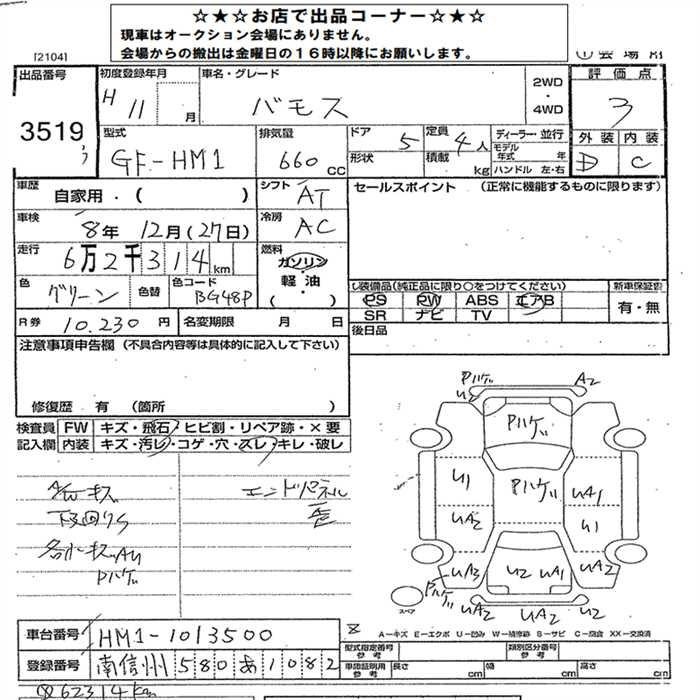 ☆★☆お店で出品コーナー☆★☆
現車はオークション会場にありません。
会場からの搬出は金曜日の16時以降にお願いします。
[2104]
出品番号 初度登録年月 車名・グレード 2WD・4WD 評価点
3519 H 11 月 バモス 3
型式 排気量 ドア 5 定員 4人 ディーラー・並行 外装 内装
GF-HM1 660 CC 形状 積載 kg モデル年式 年 ハンドル 左・右 D C
車歴 自家用・( ) シフト AT セールスポイント (正常に機能するものに限ります)
車検 8年 12月(27日) 冷房 AC
走行 6万2千314km 燃料 ガソリン・軽油・( )
色 グリーン 色替 色コード BG48P
装備品(純正品に限り○をつけてください) 新車保証書
PS PW ABS エアB 有・無
SR ナビ TV
R券 10.230円 名変期限 月 日 後日品
注意事項申告欄 (不具合内容等は具体的に記入して下さい)
修復歴 有 (箇所 )
検査員 FW キズ・飛石・ヒビ割・リペア跡・×要
記入欄 内装 キズ・汚レ・コゲ・穴・スレ・キレ・破レ
A/Wキズ エンドパネル
下回りS 歪
各小キズAU
Pハゲ
Pハゲ
U2 A2
Pハゲ
U1 Pハゲ UA1
UA2 U1
Pハゲ UA3 U2 UA1 UA2
UA2 UA2 U2
スペア
8 A-キズ E-エクボ U-凹み W-補修跡 S-サビ C-腐食 XX-交換済
車台番号 HM1-1013500 型式指定番号 参考 類別区分番号 参考
登録番号 南信州 580 あ 1082 車庫証明用 参考 長さ cm 幅 cm 高さ cm
62314km